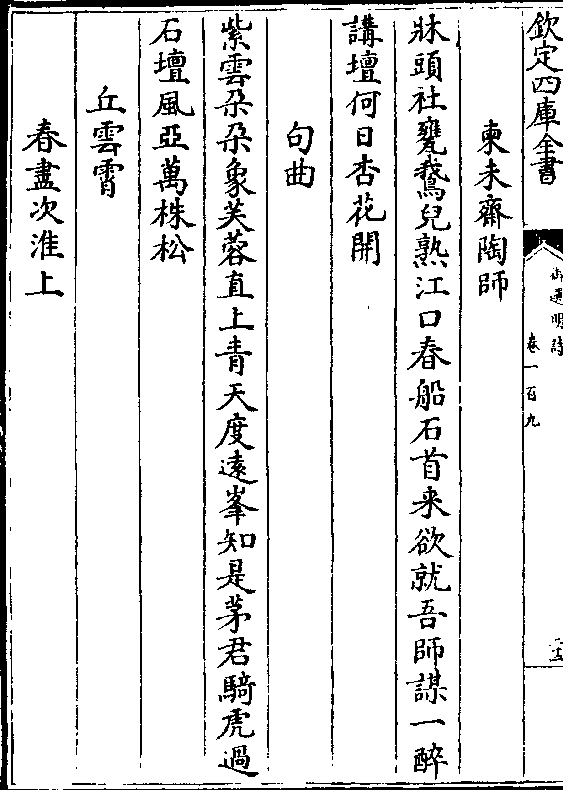 欽定四庫全書
御選明詩
卷一百九
柬未齋陶師
牀頭社甕鵞兒熟江口春船石首来欲就吾師謀一醉
講壇何日杏花開
句曲
紫雲朵朵象芙蓉直上青天度遠峯知是茅君騎虎過
石壇風亞萬株松
丘雲霄
春盡次淮上